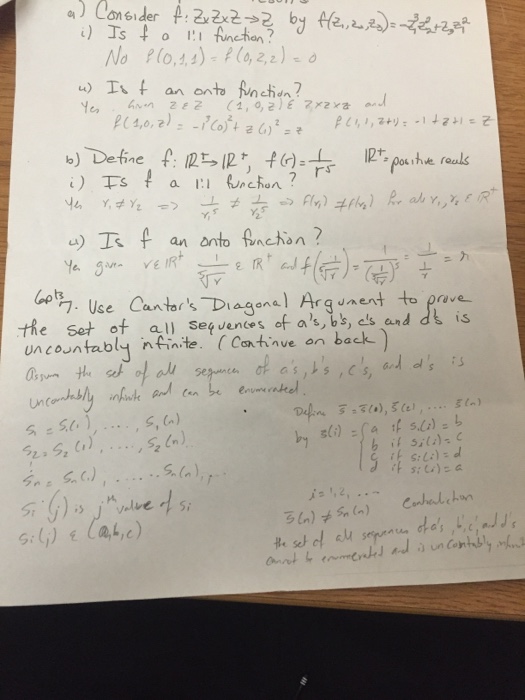 a) Consider f: ZxZxZ→Z by f(z₁,z₂,z₃)=-z₁³z₂²+z₃z₁²
i) Is f a 1:1 function?
No f(0,1,1) = f(0,2,2) = 0
ii) Is f an onto function?
Yes. Given z∈Z (1,0,z)∈ ZxZxZ and
f(1,0,z) = -1³(0)²+z(1)²=z f(1,1,z+1)= -1+z+1=z
b) Define f: ℝ⁺→ℝ⁺, f(r)=1/r⁵ ℝ⁺=positive reals
i) Is f a 1:1 function?
Yes r₁≠r₂ => 1/r₁⁵ ≠ 1/r₂⁵ => f(r₁) ≠f(r₂) for all r₁,r₂ ∈ ℝ⁺
ii) Is f an onto function?
Yes given r∈ℝ⁺ 1/⁵√r ∈ ℝ⁺ and f(1/⁵√r)= 1/(1/⁵√r)⁵ = 1/(1/r) = r.
7. Use Cantor's Diagonal Argument to prove
the set of all sequences of a's, b's, c's and d's is
uncountably infinite. (Continue on back)
Assume the set of all sequences of a's, b's, c's, and d's is
uncountably infinite and can be enumerated.
S₁ = S₁(1), ...., S₁(n)
S₂ = S₂(1), ...., S₂(n)
⋮
Sₙ = Sₙ(1), ...... Sₙ(n), ...
Sᵢ(j) is jᵗʰ value of Sᵢ
Sᵢ(j) ∈ (a,b,c)
Define s̄ = s̄(1), s̄(2), .... s̄(n)
by s̄(i) = {a if sᵢ(i) = b
b if sᵢ(i) = c
c if sᵢ(i) = d
d if sᵢ(i) = a
i = 1,2, ...
s̄(n) ≠ sₙ(n) Contradiction
the set of all sequences of a's, b's, c's, and d's
cannot be enumerated and is uncountably infinite